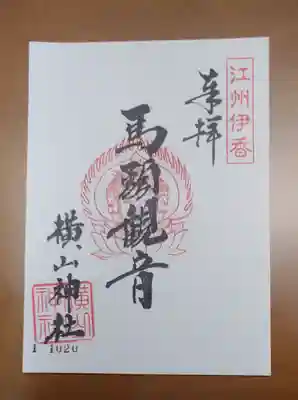 江州伊香
奉拝
馬頭観音
横山神社
1 1020